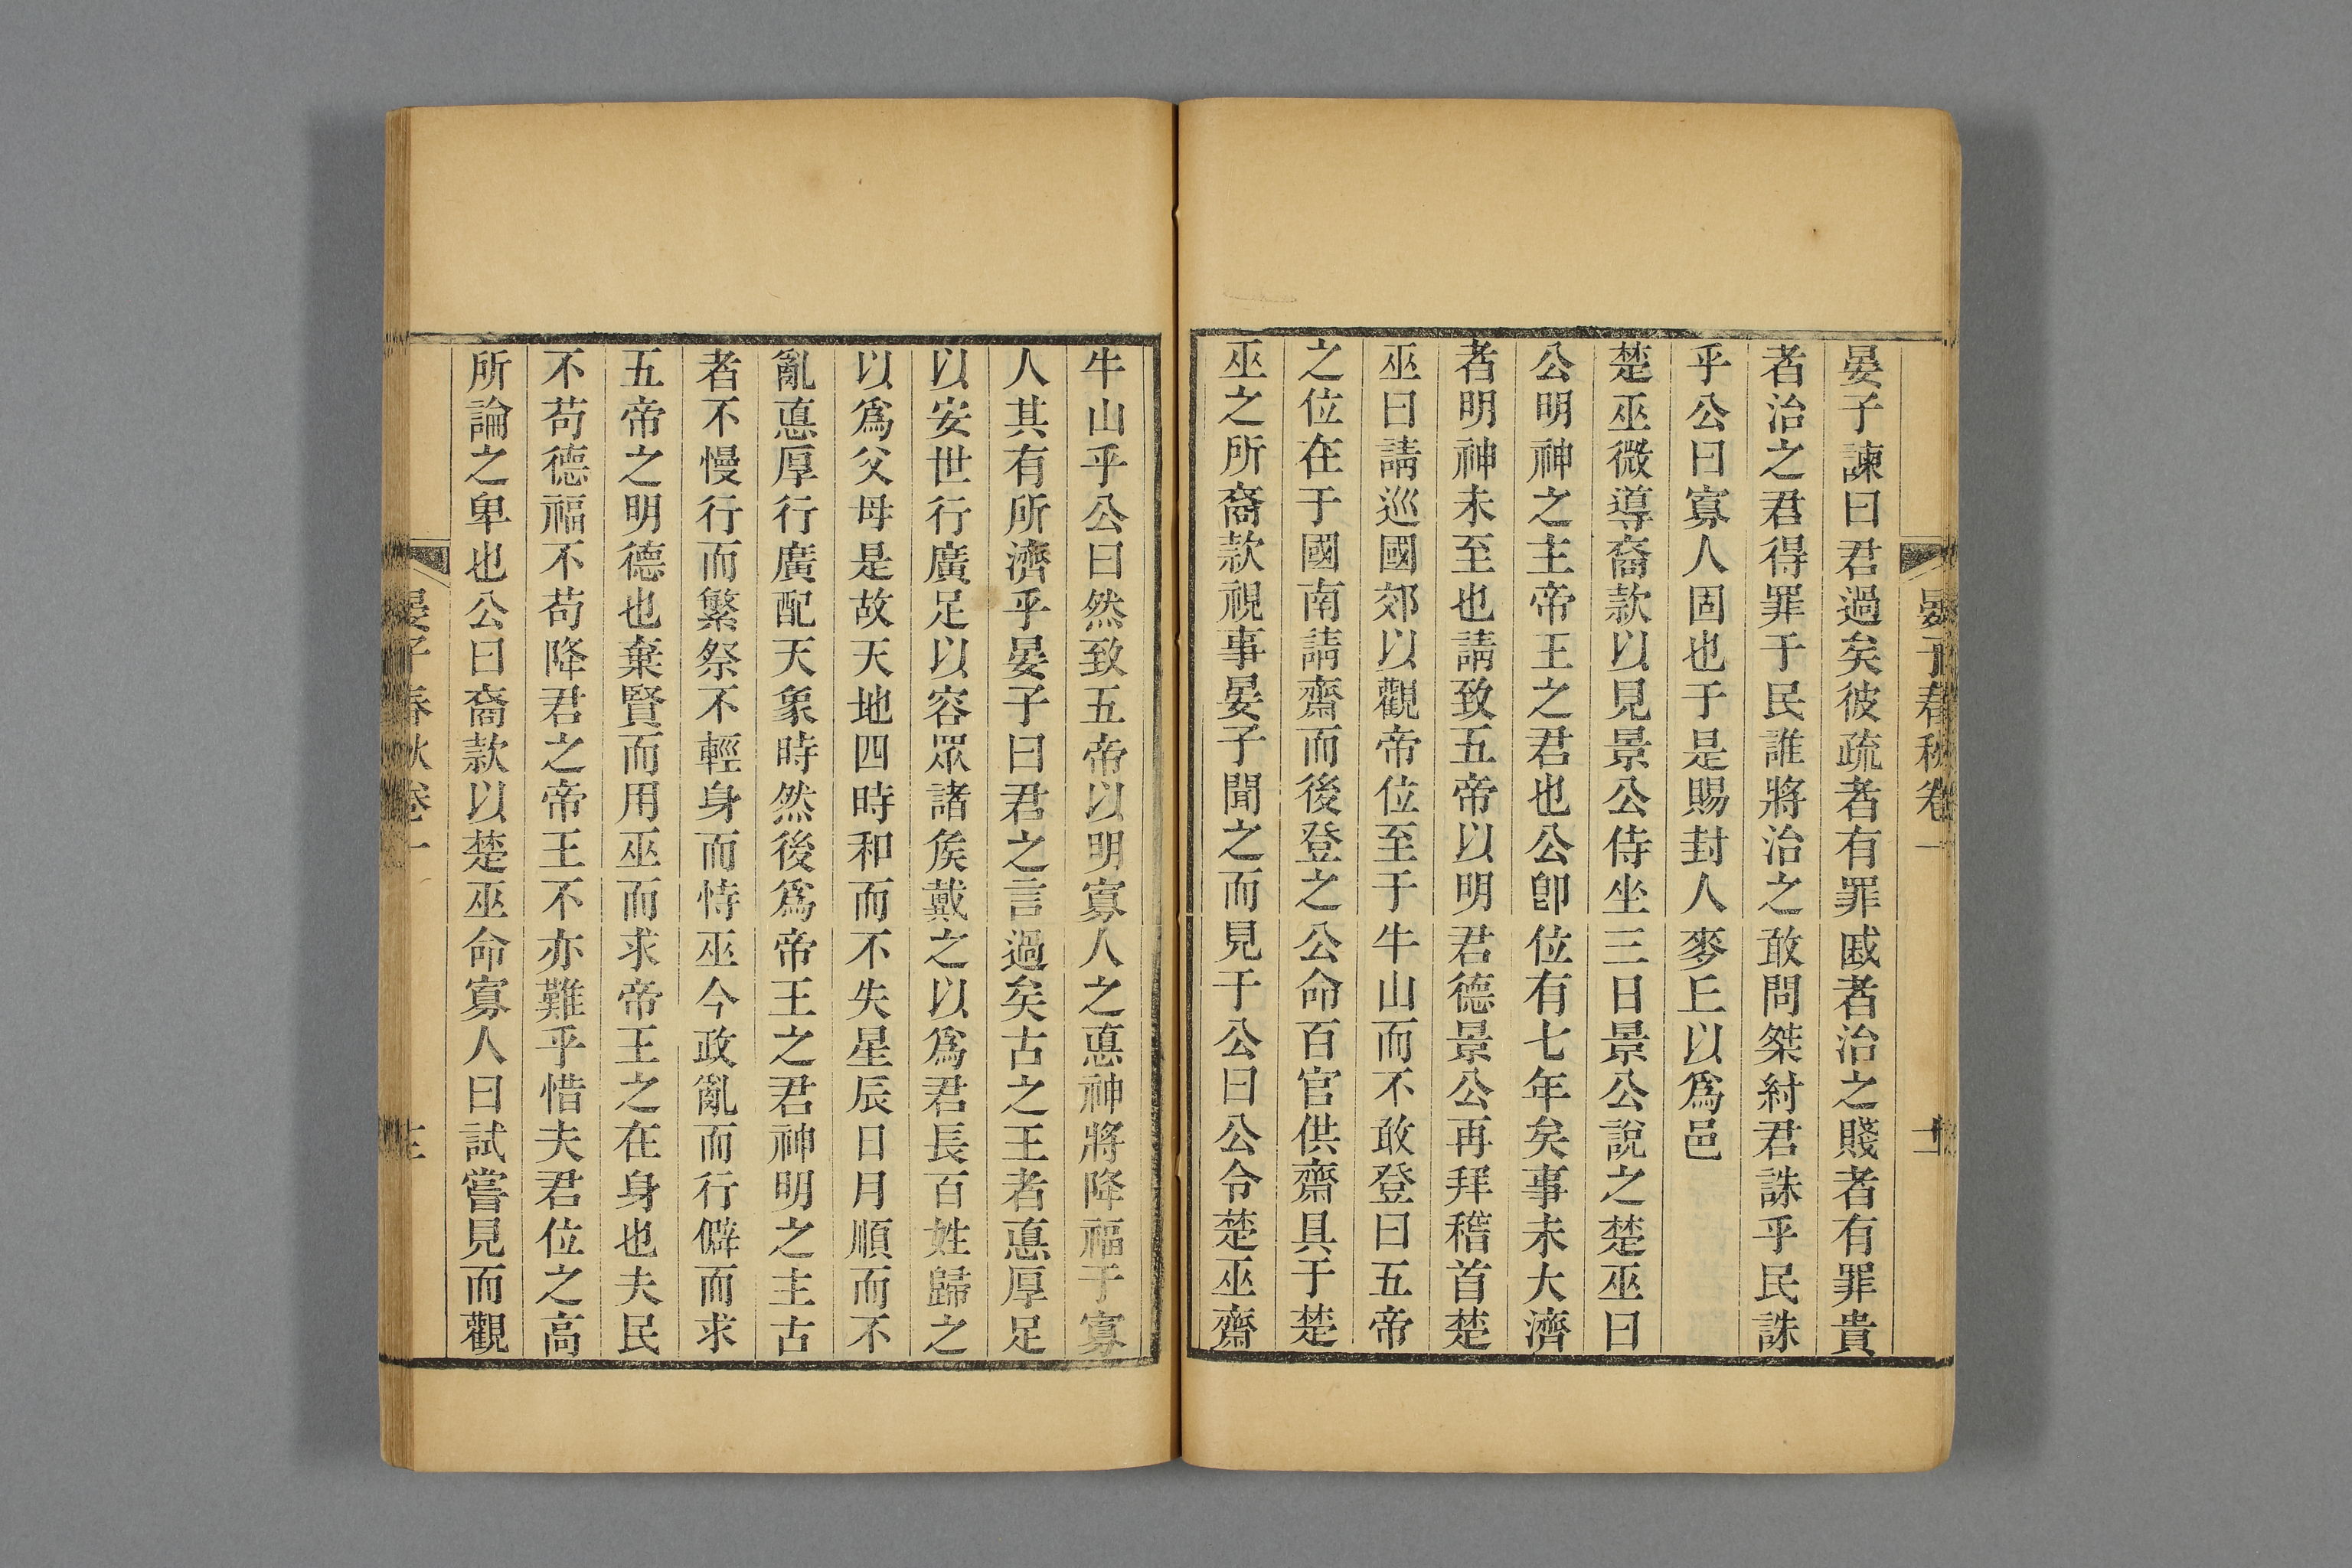 晏子春秋卷一
晏子諫曰君過矣彼疏者有罪戚者治之賤者有罪貴
者治之君得罪于民誰將治之敢問桀紂君誅乎民誅
乎公曰寡人固也于是賜封人麥丘以爲邑
楚巫微導裔款以見景公侍坐三日景公說之楚巫曰
公明神之主帝王之君也公卽位有七年矣事未大濟
者明神未至也請致五帝以明君德景公再拜稽首楚
巫曰請巡國郊以觀帝位至于牛山而不敢登曰五帝
之位在于國南請齋而後登之公命百官供齋具于楚
巫之所裔款視事晏子聞之而見于公曰公令楚巫齋
牛山乎公曰然致五帝以明寡人之悳神將降福于寡
人其有所濟乎晏子曰君之言過矣古之王者悳厚足
以安世行廣足以容眾諸矦戴之以爲君長百姓歸之
以爲父母是故天地四時和而不失星辰日月順而不
亂悳厚行廣配天象時然後爲帝王之君神明之主古
者不慢行而繁祭不輕身而恃巫今政亂而行僻而求
五帝之明德也棄賢而用巫而求帝王之在身也夫民
不苟德福不苟降君之帝王不亦難乎惜夫君位之高
所論之卑也公曰裔款以楚巫命寡人曰試嘗見而觀
晏子春秋卷一